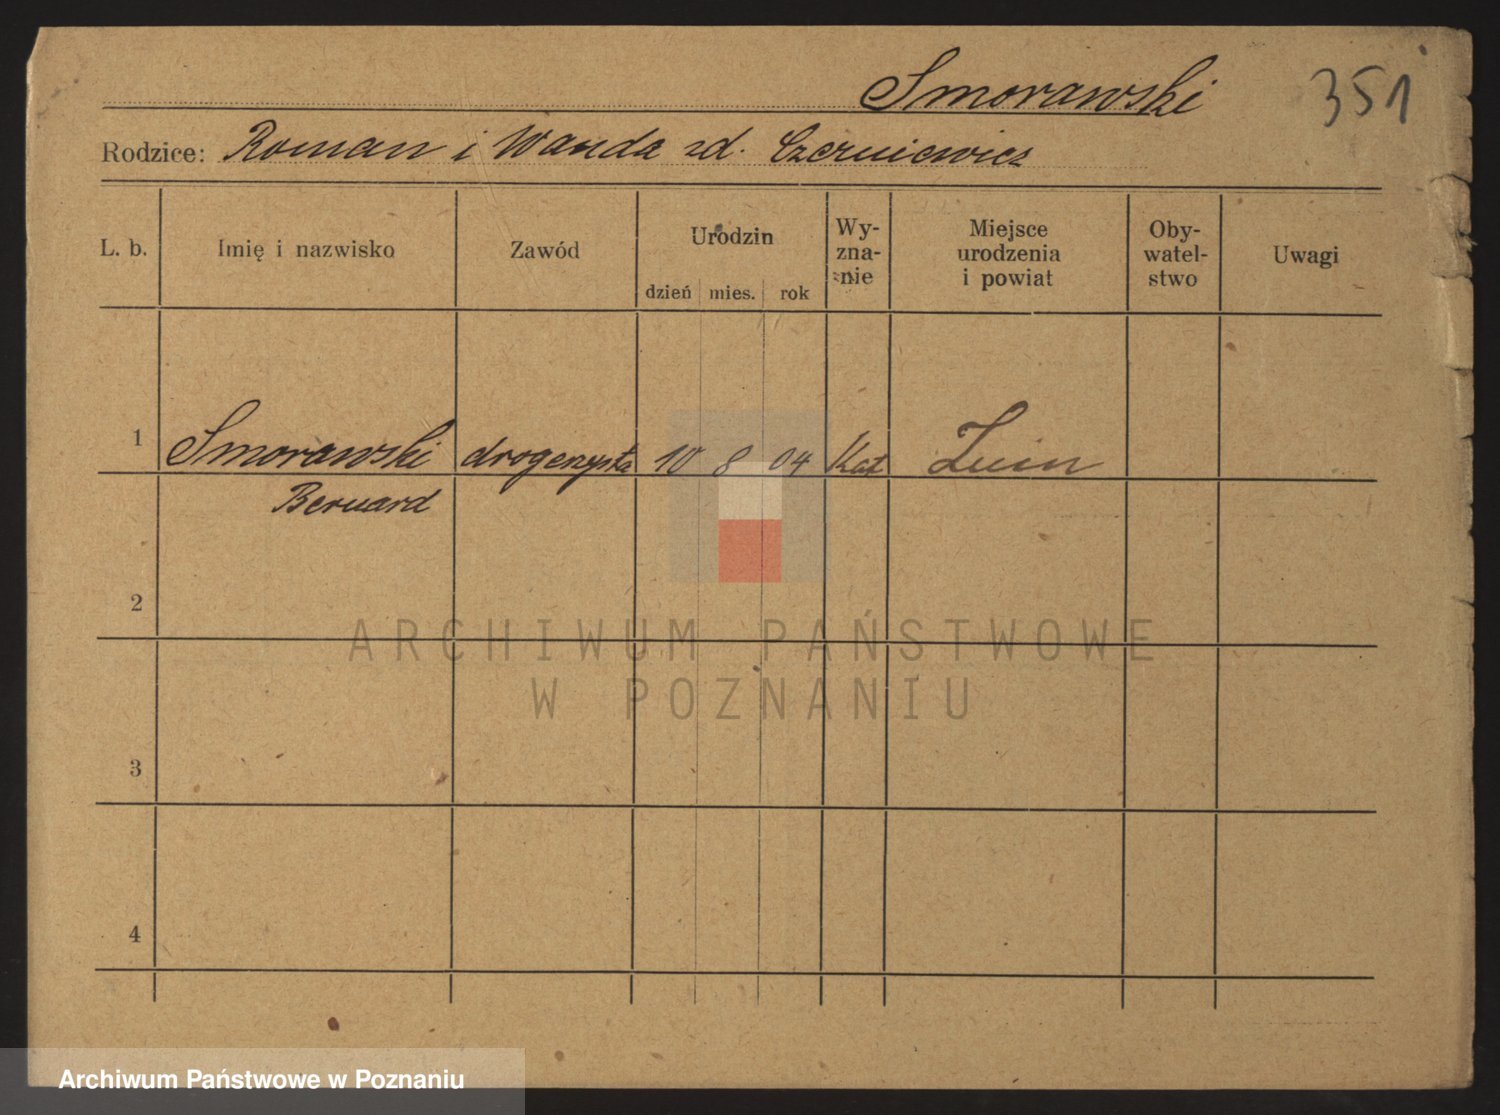 Smorawski 351
Rodzice: Roman i Wanda zd. Czerniewicz
L. b. Imię i nazwisko Zawód Urodzin dzień mies. rok Wy-zna-nie Miejsce urodzenia i powiat Oby-watel-stwo Uwagi
1 Smorawski drogerzysta 10 8 04 Kat Żnin
Bernard
2
ARCHIWUM PAŃSTWOWE
W POZNANIU
3
4
Archiwum Państwowe w Poznaniu